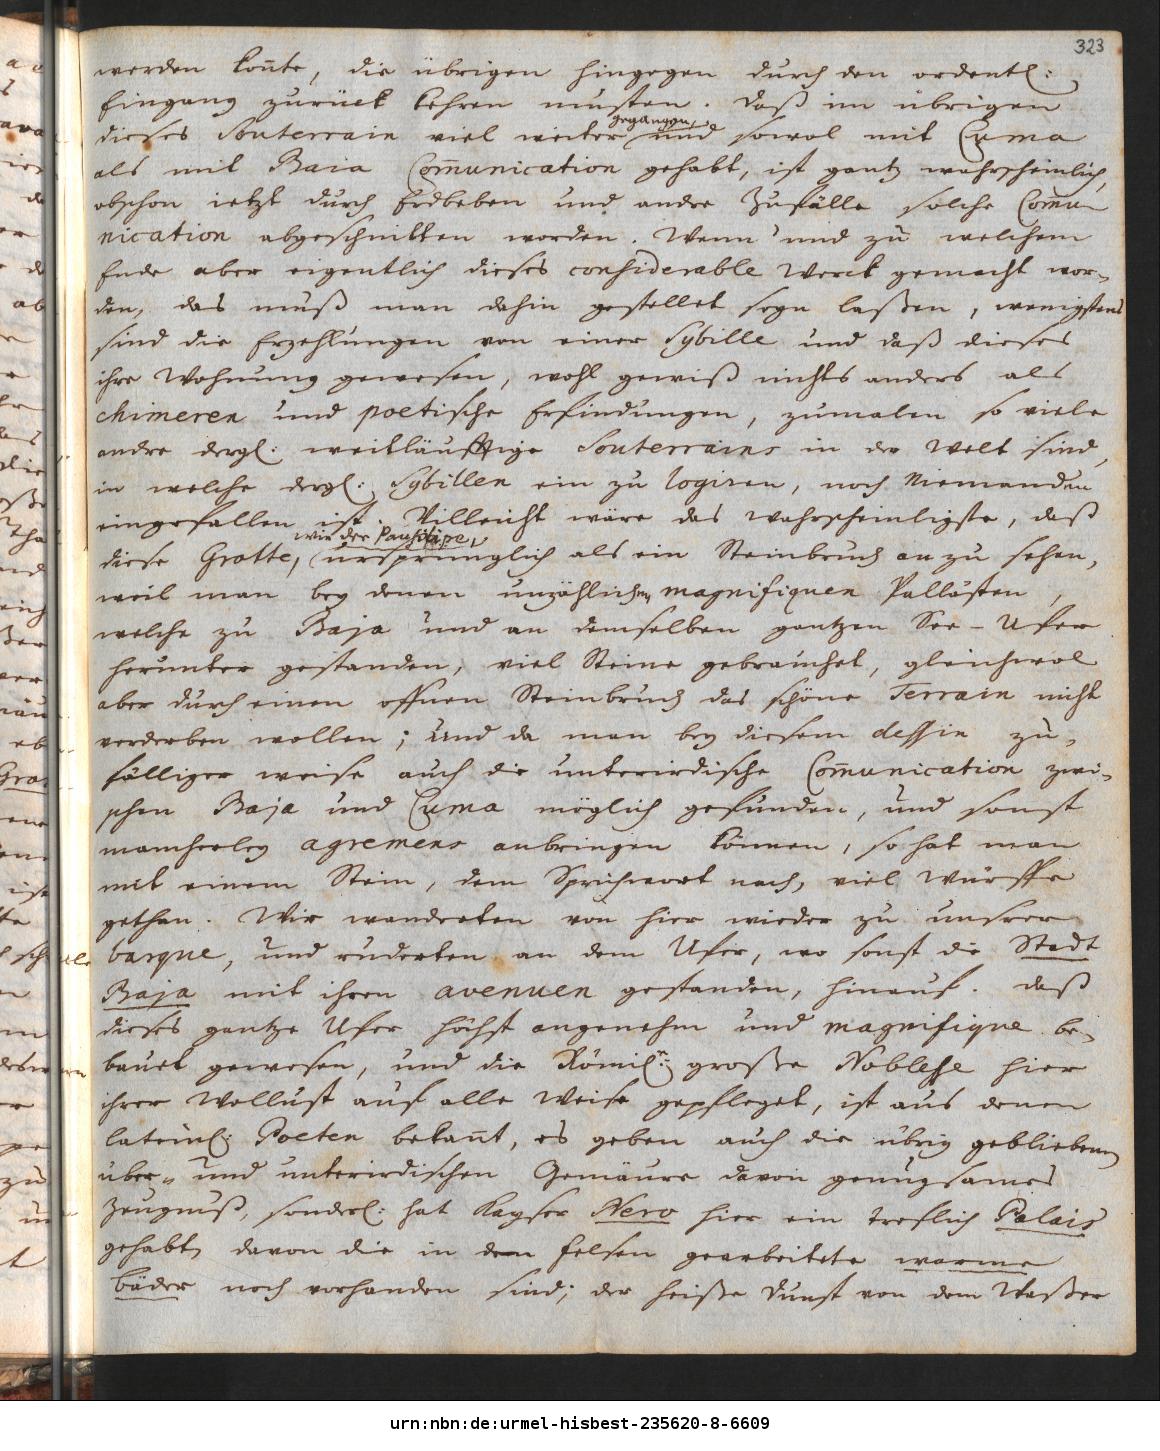 323
werden konte, die übrigen hingegen durch den ordentl:
Eingang zurück kehren musten. Daß im übrigen
dieses Souterrain viel weiter gegangen, und sowol mit Cuma
als mit Baia Com̄unication gehabt, ist gantz wahrscheinlich,
obschon ietzt durch Erdbeben und andre Zufälle solche Com̄u-
nication abgeschnitten worden. Wenn und zu welchem
Ende aber eigentlich dieses considerable Werck gemacht wor-
den, das muß man dahin gestellet seyn laßen, wenigstens
sind die Erzehlungen von einer Sybille und daß dieses
ihre Wohnung gewesen, wohl gewiß nichts anders als
chimeren und poetische Erfindungen, zumalen so viele
andre dergl: weitläufftige Souterrains in der Welt sind,
in welche dergl: Sybillen ein zu logiren, noch Niemanden
eingefallen ist. Villeicht wäre das wahrscheinligste, daß
diese Grotte, wie der Pausilipe, ursprünglich als ein Steinbruch an zu sehen,
weil man bey denen unzählichen magnifiquen Pallästen,
welche zu Baja und an demselben gantzen See-Ufer
herunter gestanden, viel Steine gebrauchet, gleichwol
aber durch einen offnen Steinbruch das schöne Terrain nicht
verderben wollen; und da man bey diesem dessin zu-
fälliger weise auch die unterirdische Com̄unication zwi-
schen Baja und Cuma möglich gefunden, und sonst
mancherley agremens anbringen können, so hat man
mit einem Stein, dem Sprichwort nach, viel Würffe
gethan. Wir wanderten von hier wieder zu unsrer
barque, und ruderten an dem Ufer, wo sonst die Stadt
Baja mit ihren avenuen gestanden, hinauf. Daß
dieses gantze Ufer höchst angenehm und magnifique be-
bauet gewesen, und die Römil: große Noblesse hier
ihrer Wollust auf alle Weise gepfleget, ist aus denen
lateinl: Poeten bekan̄t, es geben auch die übrig gebliebenen
über- und unterirdischen Gemäure davon genugsames
Zeugnuß, sonderl: hat Kayser Nero hier ein treflich Palais
gehabt, davon die in dem Felsen gearbeitete warme
bäder noch vorhanden sind; der heiße Dunst von dem Waßer
urn:nbn:de:urmel-hisbest-235620-8-6609